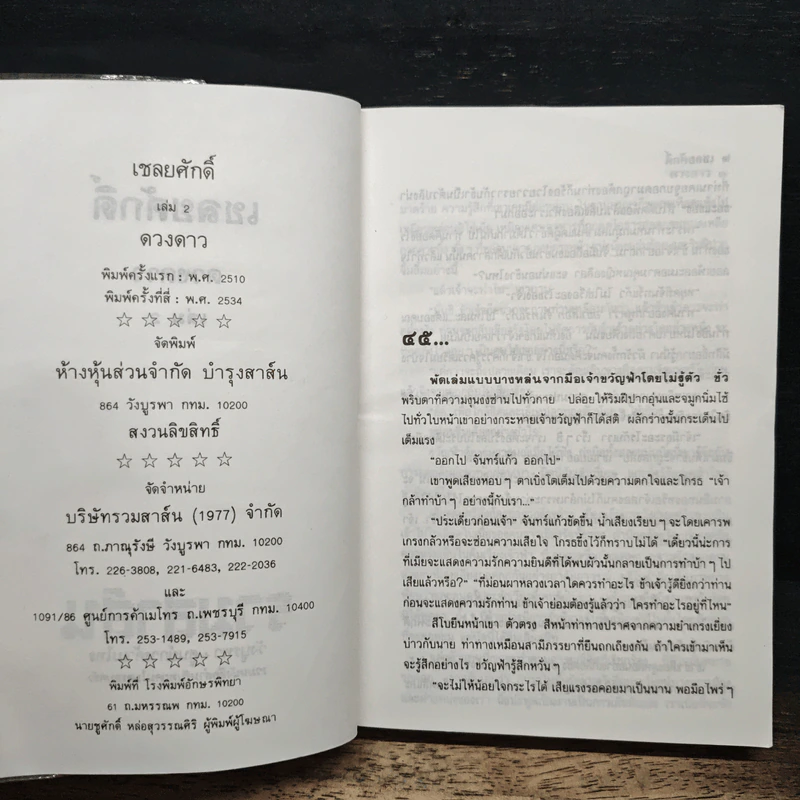 เชลยศักดิ์
เล่ม 2
ดวงดาว
พิมพ์ครั้งแรก : พ.ศ. 2510
พิมพ์ครั้งที่สี่ : พ.ศ. 2534
☆ ☆ ☆ ☆ ☆
จัดพิมพ์
ห้างหุ้นส่วนจำกัด บำรุงสาส์น
864 วังบูรพา กทม. 10200
สงวนลิขสิทธิ์
☆ ☆ ☆ ☆ ☆
จัดจำหน่าย
บริษัทรวมสาส์น (1977) จำกัด
864 ถ.ภาณุรังษี วังบูรพา กทม. 10200
โทร. 226-3808, 221-6483, 222-2036
และ
1091/86 ศูนย์การค้าเมโทร ถ.เพชรบุรี กทม. 10400
โทร. 253-1489, 253-7915
☆ ☆ ☆ ☆ ☆
พิมพ์ที่ โรงพิมพ์อักษรพิทยา
61 ถ.มหรรณพ กทม. 10200
นายชูศักดิ์ หล่อสุวรรณศิริ ผู้พิมพ์ผู้โฆษณา
๔๕...
พัดเล่มแบบบางหล่นจากมือเจ้าขวัญฟ้าโดยไม่รู้ตัว ชั่ว
พริบตาที่ความงุนงงซ่านไปทั่วกาย ปล่อยให้ริมฝีปากอุ่นและจมูกนิ่มไซ้
ไปทั่วใบหน้าเขาอย่างกระหายเจ้าขวัญฟ้าก็ได้สติ ผลักร่างนั้นกระเด็นไป
เต็มแรง
"ออกไป จันทร์แก้ว ออกไป"
เขาพูดเสียงหอบๆ ตาเบิ่งโตเต็มไปด้วยความตกใจและโกรธ "เจ้า
กล้าทำบ้าๆ อย่างนี้กับเรา..."
"ประเดี๋ยวก่อนเจ้า" จันทร์แก้วขัดขึ้น น้ำเสียงเรียบๆ จะโดยเคารพ
เกรงกลัวหรือจะซ่อนความเสียใจ โกรธขึ้งไว้ก็ทราบไม่ได้ "เดี๋ยวนี้น่ะการ
ที่เมียจะแสดงความรักความยินดีที่ได้พบผัวนั้นกลายเป็นการทำบ้าๆ ไป
เสียแล้วหรือ?" "ที่ม่อนผาหลวงเวลาใดควรทำอะไร ข้าเจ้ารู้ดียิ่งกว่าท่าน
ก่อนจะแสดงความรักท่าน ข้าเจ้าย่อมต้องรู้แล้วว่า ใครทำอะไรอยู่ที่ไหน"
สีโบยืนหน้าเขา ตัวตรง สีหน้าท่าทางปราศจากความยำเกรงเยี่ยง
บ่าวกับนาย ท่าทางเหมือนสามีภรรยาที่ยืนถกเถียงกัน ถ้าใครเข้ามาเห็น
จะรู้สึกอย่างไร ขวัญฟ้ารู้สึกหวั่นๆ
"จะไม่ให้น้อยใจกระไรได้ เสียแรงรอคอยมาเป็นนาน พอมือไพร่ๆ